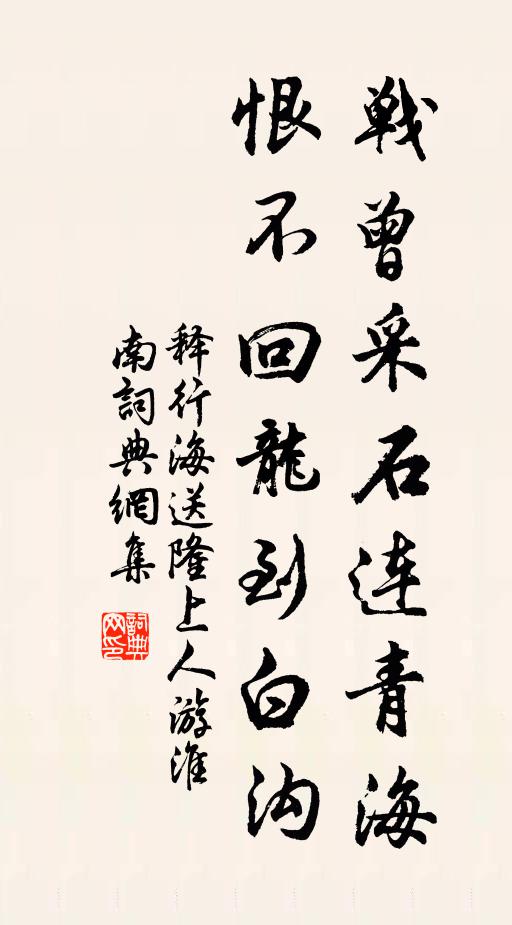 戦曾采石连青海
恨不回龍到白沟
释行海送隆上人游淮
南詞典網集
詞典网印